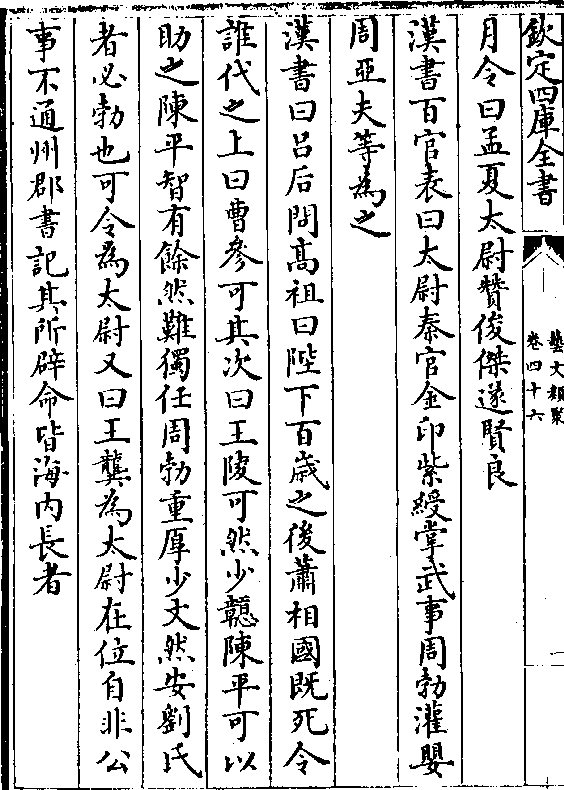 欽定四庫全書
藝文類聚
卷四十六
一
月令曰孟夏太尉贊俊傑遂賢良
漢書百官表曰太尉秦官金印紫綬掌武事周勃灌嬰
周亞夫等為之
漢書曰呂后問髙祖曰陛下百歳之後蕭相國既死令
誰代之上曰曹參可其次曰王陵可然少戇陳平可以
助之陳平智有餘然難獨任周勃重厚少文然安劉氏
者必勃也可令為太尉又曰王龔為太尉在位自非公
事不通州郡書記其所辟命皆海内長者